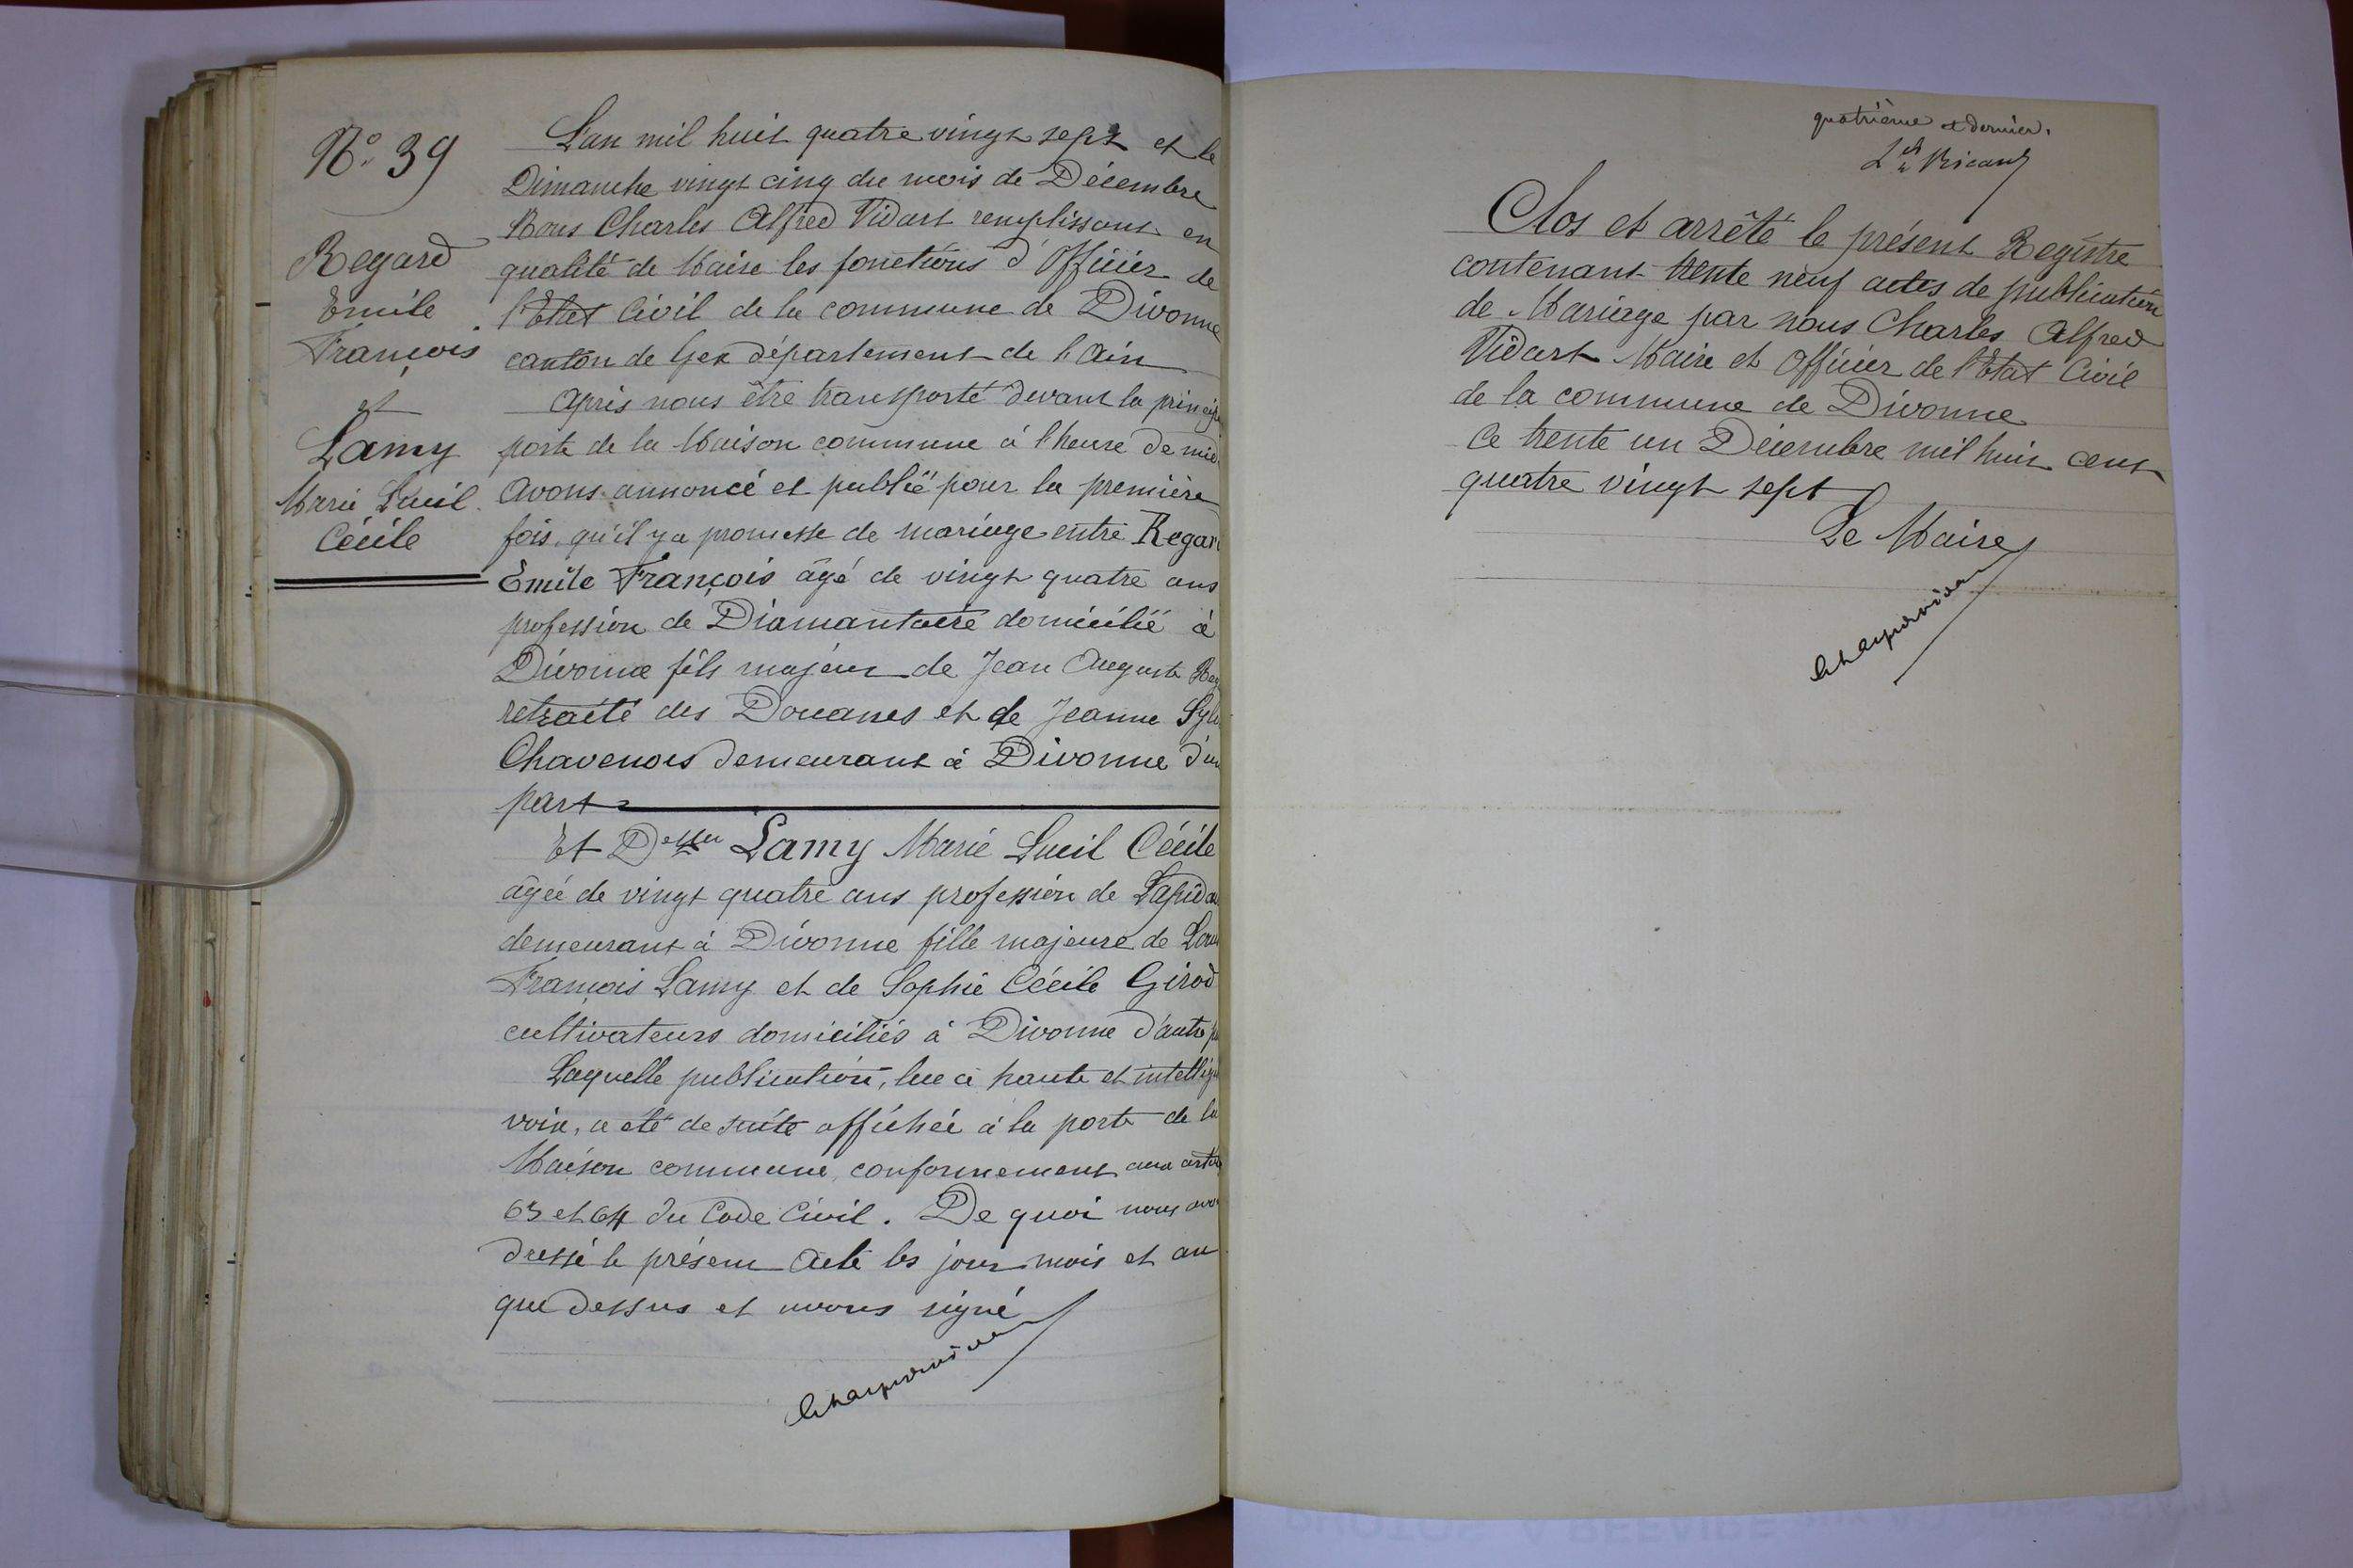 N° 39
Regard
Emile
François
et
Lamy
Marie Lucil
Cécile
L'an mil huit quatre vingt sept et le
Dimanche vingt cinq du mois de Décembre
Nous Charles Alfred Vidart remplissant en
qualité de Maire les fonctions d'Officier de
l'Etat Civil de la commune de Divonne
canton de Gex département de l'Ain
Après nous être transporté devant la princip
porte de la Maison commune à l'heure de midi
Avons annoncé et publié pour la première
fois, qu'il y a promesse de mariage entre Regar
Emile François âgé de vingt quatre ans
profession de Diamantaire domicilié à
Divonne fils majeur de Jean Auguste Reg
retraité des Douanes et de Jeanne Syl
Chavenois demeurant à Divonne d'un
part
Et Delle Lamy Marie Lucil Cécile
âgée de vingt quatre ans profession de Lapida
demeurant à Divonne fille majeure de Lou
François Lamy et de Sophie Cécile Girod
cultivateurs domiciliés à Divonne d'autre p
Laquelle publication, lue à haute et intellig
voix, a été de suite affichée à la porte de la
Maison commune, conformement aux arti
63 et 64 du Code Civil. De quoi nous avo
dressé le présent Acte les jour mois et an
que dessus et avons signé
quatrième et dernier.
Clos et arrêté le présent Registre
contenant trente neuf actes de publication
de Mariage par nous Charles Alfred
Vidart Maire et Officier de l'Etat Civil
de la commune de Divonne
Ce trente un Décembre mil huit cent
quatre vingt sept
Le Maire